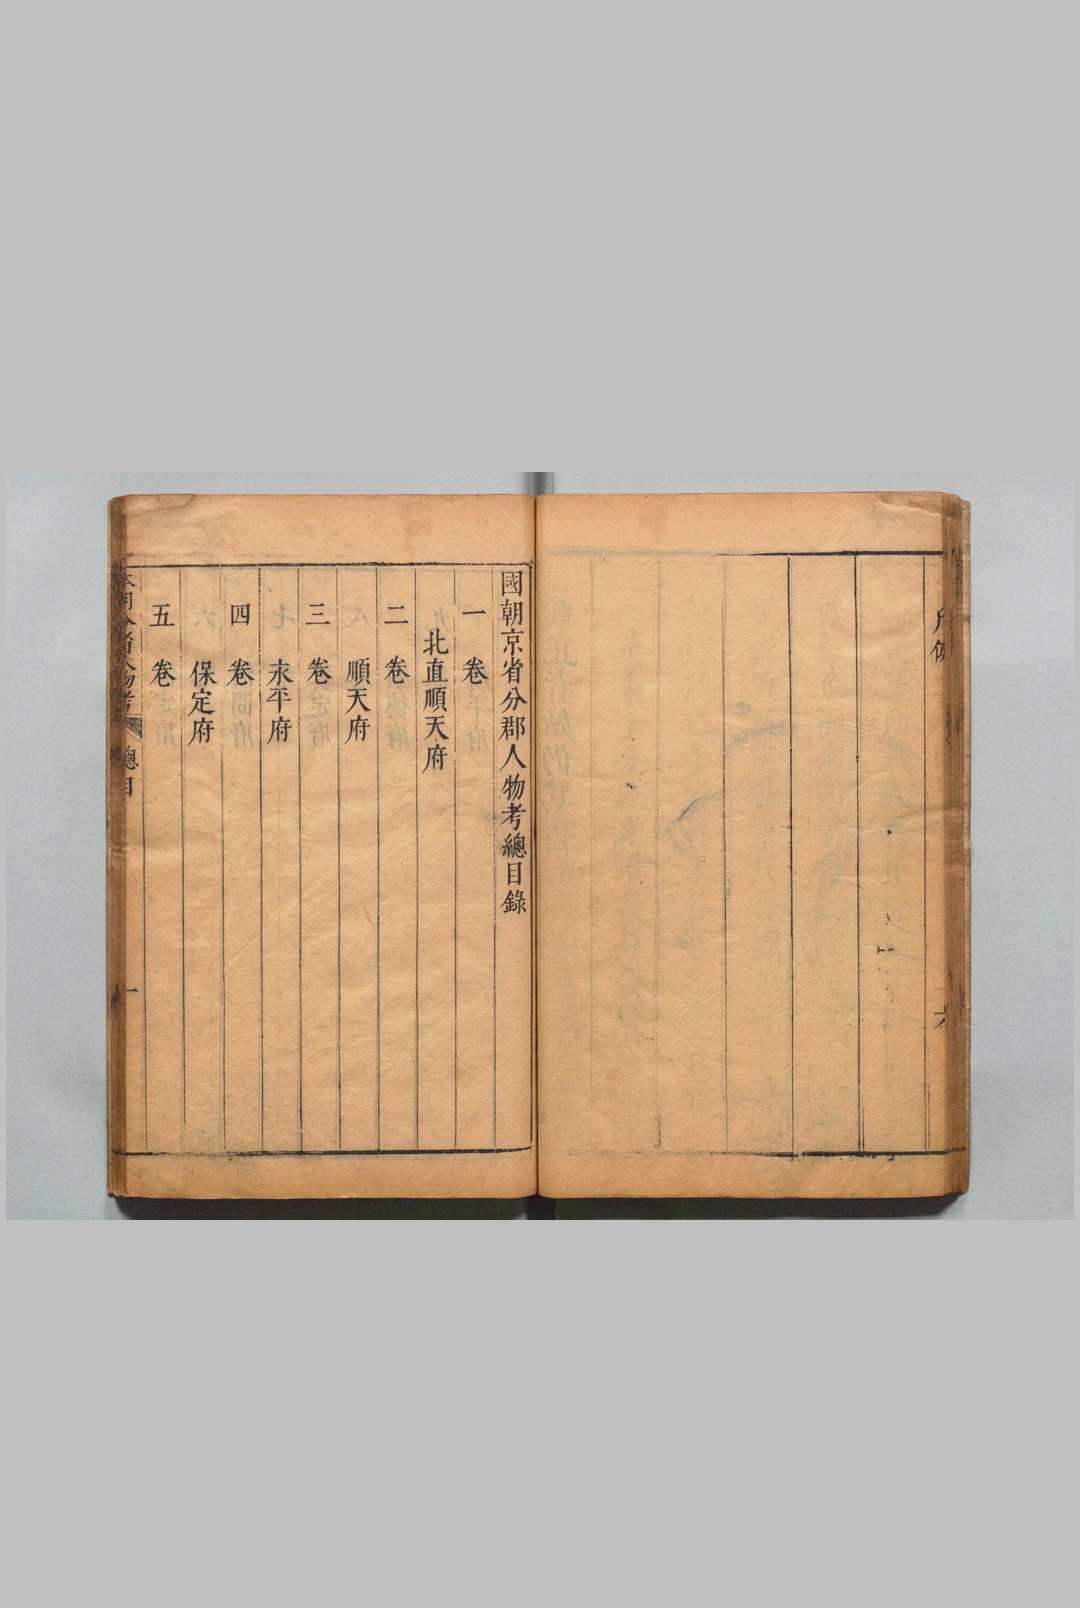 國朝京省分郡人物考總目錄
一卷
北直順天府
二卷
順天府
三卷
永平府
四卷
保定府
五卷
本朝分省人物考 總目 一
六